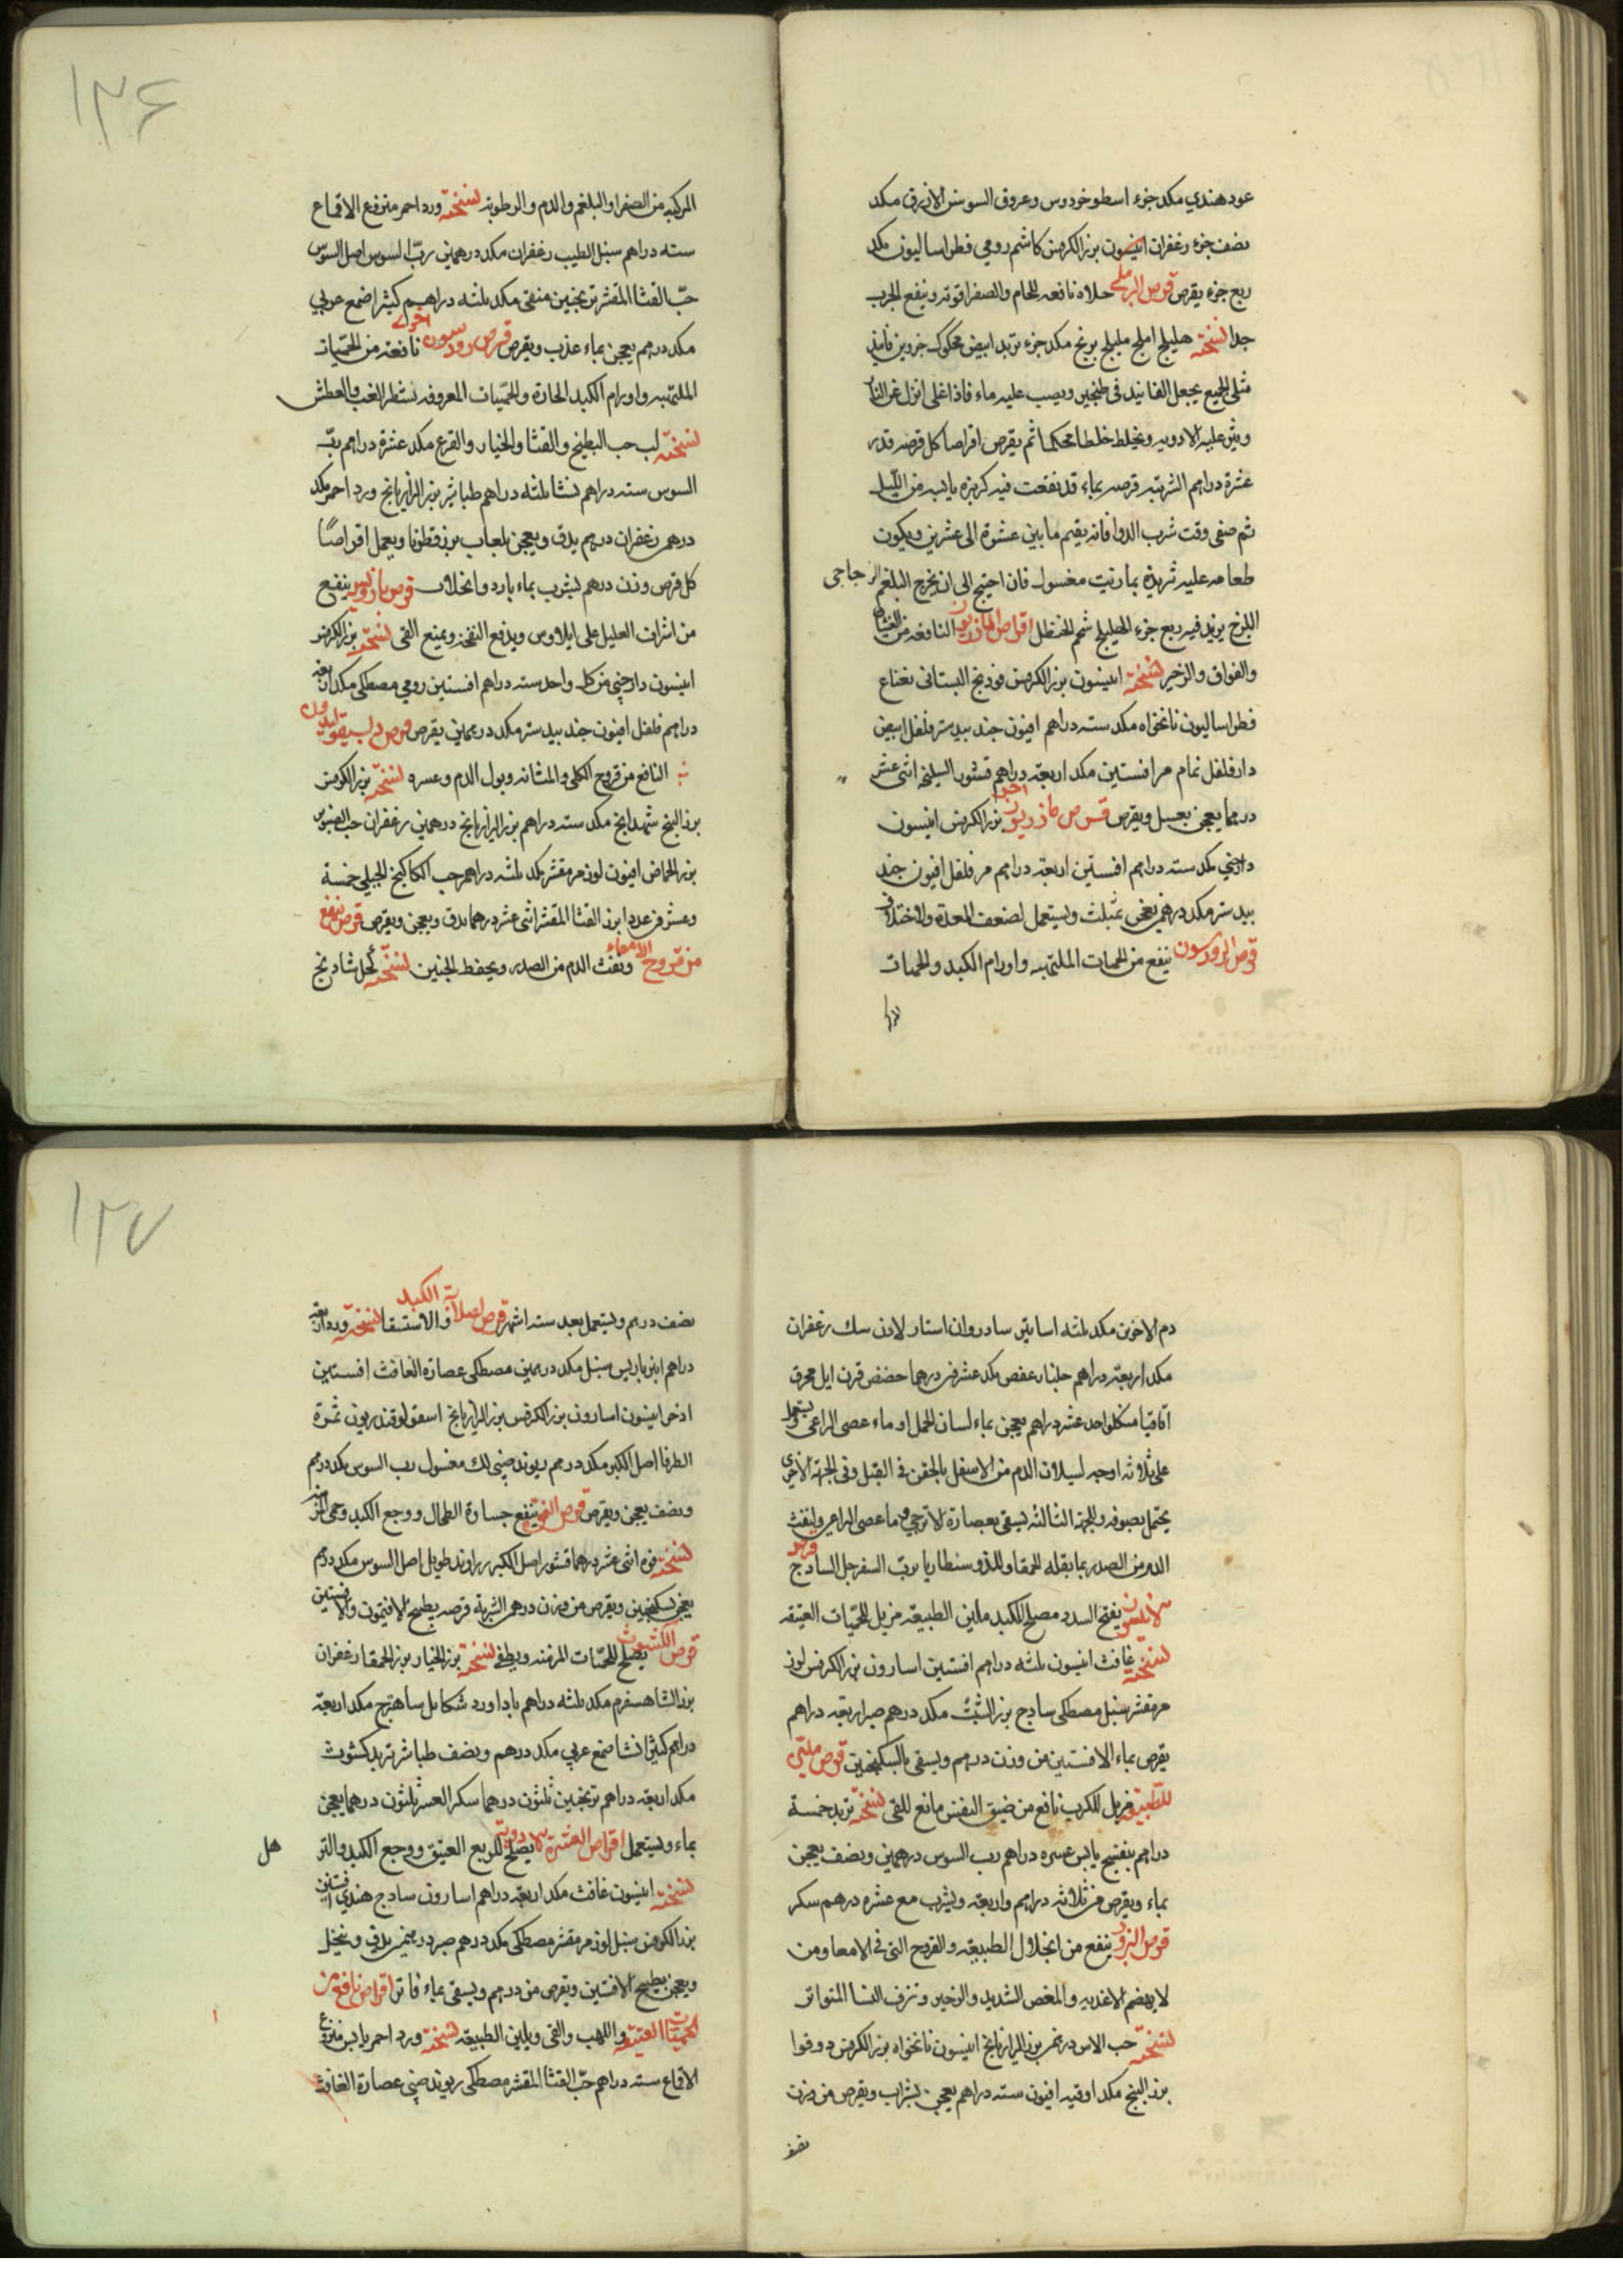 عود هندي مكد جزء اسطوخودوس وعروق السوسن الازرق مكد
نصف جزء زعفران انيسون بزر الكرفس كاشم رومي فطراساليون مكد
ربع جزء يقرص قرص البرمكي حلاه نافعه للخام والصفرا قوته وينفع الجرب
جدا نسخته هليلج املج بليلج برنج مكد جزء تربد ابيض محكوك جزوين فانيذ
مثلي الجميع يجعل الفانيد في طنجير ويصب عليه ماء فاذا غلى انزل عن النار
ويثر عليه الادويه ويخلط خلطا محكما ثم يقرص اقراصا كل قرصه قدر
عشرة دراهم الشربه قرصه بماء قد نقعت فيه كزبره يابسه من الليل
ثم صفى وقت شرب الدوا فانه يقيم ما بين عشرة الى عشرين ويكون
طعامه عليه ثريدة بمازيت مغسول فان احتيج الى ان يخرج البلغم الزجاجي
اللزج يزيد فيه ربع جزء الهليلج شحم الحنظل اقراص المازريون النافعه من الغثيان
والفواق والزحير نسخته انيسون بزر الكرفس فودنج البستاني نعناع
فطراساليون نانخواه مكد سته دراهم افيون جند بيدستر فلفل ابيض
دارفلفل نمام مر افسنتين مكد اربعة دراهم قشور السليخه اثني عشر
درهما يعجن بعسل ويقرص قرص مازريون اخر بزر الكرفس انيسون
دارصيني مكد سته دراهم افسنتين اربعة دراهم مر فلفل افيون جند
بيدستر مكد درهم يعجن بمثلث ويستعمل لضعف المعدة والاختلاف
قرص الرودسون ينفع من الحميات الملتهبه واورام الكبد والحميات
المركبه من الصفرا والبلغم والدم والرطوبة نسخته ورد احمر منزوع الاقماع
سته دراهم سنبل الطيب زعفران مكد درهمين رب السوس اصل السوس
حب القثا المقشر ترنجبين منقى مكد ثلثه دراهم كثيرا صمغ عربي
مكد درهم يعجن بماء عذب ويقرص قرص رودسون اخرى نافعة من الحميات
الملتهبه واورام الكبد الحادة والحميات المعروفه بشطر الغب والعطش
نسخته لب حب البطيخ والقثا والخيار والقرع مكد عشرة دراهم رب
السوس سته دراهم نشا ثلثه دراهم طباشير بزر الرازيانج ورد احمر مكد
درهم زعفران درهم يدق ويعجن بلعاب بزرقطونا ويعمل اقراصا
كل قرص وزن درهم يشرب بماء بارد وانحلاب قرص ينفع
من اشراف العليل على ايلاوس ويدفع النفخة ويمنع القي نسخته بزر الكرفس
انيسون دارصيني من كل واحد سته دراهم افسنتين رومي مصطكى مكد اربعه
دراهم فلفل افيون جند بيدستر مكد درهمين يقرص قرص
النافع من قروح الكلى والمثانه وبول الدم وعسره نسخته بزر الكرفس
بزر البنج شهدانج مكد سته دراهم بزر الرازيانج درهمين زعفران حب الصنوبر
بزر الحماض افيون لوز مر مقشر مكد ثلثه دراهم حب الكاكنج الجبلي خمسة
وعشرين عددا بزر القثا المقشر اثنى عشر درهما يدق ويعجن ويقرص قرص ينفع
من قروح الامعاء ونفث الدم من الصدر ويحفظ الجنين نسخته كحل شادنج
دم الاخوين مكد ثلثه اساتير سادروان استار لادن سك زعفران
مكد اربعة دراهم جلنار عفص مكد عشرين درهما حضض قرن ايل محرق
اقاقيا من كل واحد عشر دراهم يعجن بماء لسان الحمل او ماء عصى الراعي ويستعمل
على ثلاثه اوجه لسيلان الدم من الاسفل بالحقن في القبل وفي الجهة الاخرى
يحتمل بصوفه والجهة الثالثه ليسقى بعصارة لاترجي وما عصى الراعي ولنفث
الدم من الصدر بما بقله الحمقا وللذوسنطاريا برب السفرجل الساذج قرص
يفتح السدد مصلح الكبد ملين الطبيعه مزيل للحميات العتيقه
نسخته غافث انيسون ثلثه دراهم افسنتين اسارون بزر الكرفس لوز
مر مقشر سنبل مصطكى سادج بزر الشبث مكد درهم صبر اربعه دراهم
يقرص بماء الافسنتين من وزن درهم ويسقى بالسكنجبين قرص ملين
للطبيعه مزيل للكرب نافع من ضيق النفس مانع للقي نسخته تربد خمسة
دراهم بنفسج يابس عشره دراهم رب السوس درهمين ونصف يعجن
بماء ويقرص من ثلاثه دراهم واربعه ويشرب مع عشره درهم سكر
قرص البزور ينفع من انحلال الطبيعه والقروح التي في الامعا ومن
لا يهضم الاغذيه والمغص الشديد والزحير ونزف النسا المتواتر
نسخته حب الاس درهم بزر الرازيانج انيسون نانخواه بزر الكرفس دوقوا
بزر البنج مكد اوقيه افيون سته دراهم يعجن بشراب ويقرص من وزن
نصف
نصف درهم ويستعمل بعد سته اشهر قرص لصلابة الكبد والاستسقا نسخته ورد اربعه
دراهم انبرباريس سنبل مكد درهمين مصطكى عصارة الغافث افسنتين
اذخر انيسون اسارون بزر الكرفس بزر الرازيانج اسقولوقندريون ثمرة
الطرفا اصل الكبر مكد درهم ريوند صيني لك مغسول رب السوس مكد درهم
ونصف يعجن ويقرص قرص الفوة ينفع جساوة الطحال ووجع الكبد وحمى
نسخته فوه اثنى عشر درهما قشور اصل الكبر زراوند طويل اصل السوس مكد درهم
يعجن بسكنجبين ويقرص من وزن درهم الشربة قرصه بطبيخ الافتيمون والافسنتين
قرص الكشوث يصلح للحميات المزمنه ويطفى نسخته بزر الخيار بزر الحمقا زعفران
بزر الشاهسفرم مكد ثلثه دراهم باداورد شكاعى شاهترج مكد اربعة
دراهم كثيرا نشا صمغ عربي مكد درهم ونصف طباشير تربد كشوث
مكد اربعه دراهم ترنجبين ثلثون درهما سكر العشر ثلثون درهما يعجن
بماء ويستعمل اقراص العشرة الادوية يصلح للربع العتيق ووجع الكبد والتر
هل
نسخته انيسون غافث مكد اربعة دراهم اسارون سادج هندي افسنتين
بزر الكرفس سنبل لوز مر مقشر مصطكى مكد درهم صبر درهمين يدق وينخل
ويعجن بطبيخ الافسنتين ويقرص من درهم ويسقى بماء فاتر اقراص نافع من
الحميات العتيقه واللهب والقي ويلين الطبيعه نسخته ورد احمر يابس منزوع
الاقماع سته دراهم حب القثا المقشر مصطكى ريوند صيني عصارة الغافث
١٢٦
١٢٧